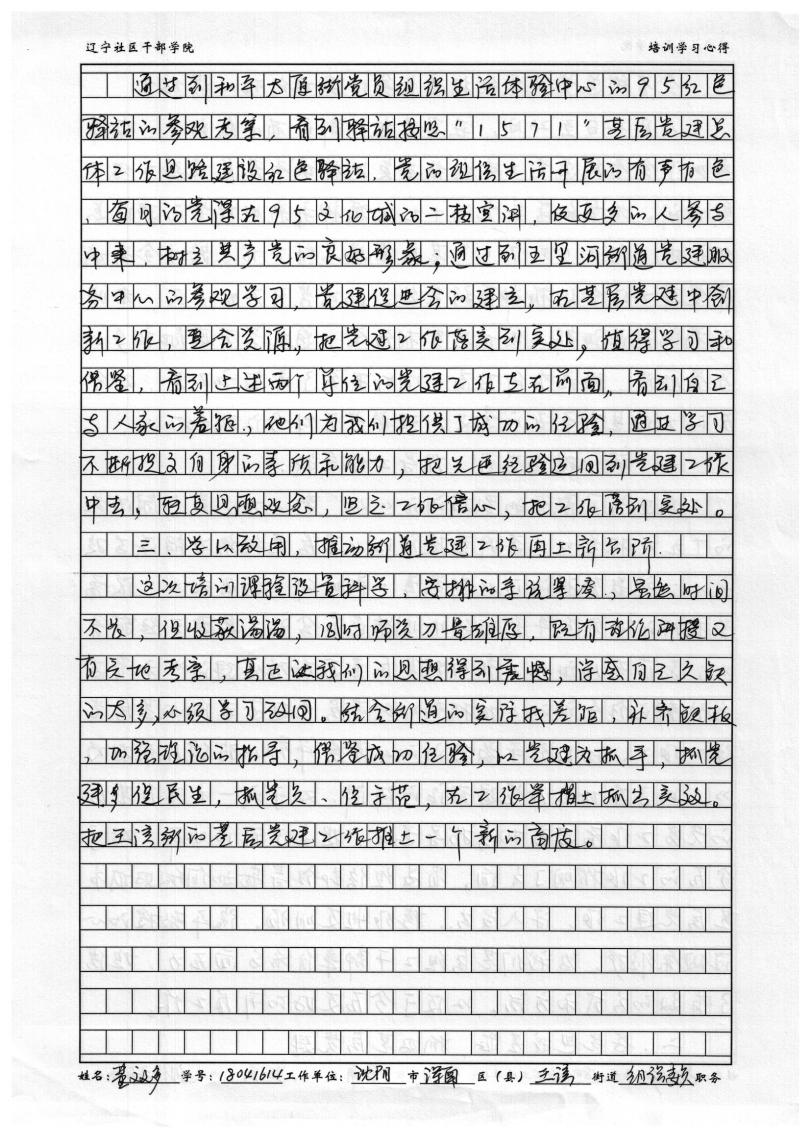 辽宁社区干部学院 培训学习心得
通过到和平大厦街党员组织生活体验中心的95红色
驿站的参观考察,看到驿站按照"1571"基层党建总
体工作思路建设红色驿站,党的组织生活开展的有声有色
,每月的党课在95文化城的二楼宣讲,使更多的人参与
中来,树立共产党的良好形象;通过到五里河街道党建服
务中心的参观学习,党建促进会的建立,在基层党建中创
新工作,整合资源,把党建工作落实到实处,值得学习和
借鉴,看到上述两个单位的党建工作走在前面,看到自己
与人家的差距,他们为我们提供了成功的经验,通过学习
不断提交自身的素质和能力,把先进经验运回到党建工作
中去,转变思想观念,坚定工作信心,把工作落到实处。
三 学以致用,推动街道党建工作再上新台阶.
这次培训课程设置科学,安排的系统紧凑,虽然时间
不长,但收获满满,同时师资力量雄厚,既有理论讲授又
有实地考察,真正让我们的思想得到震撼,深感自己欠缺
的太多,必须学习致用。结合街道的实际找差距,补齐短板
,加强理论的指导,借鉴成功经验,以党建为抓手,抓党
建多促民生,抓党员、作示范,在工作举措上抓出实效。
把王滨街的基层党建工作推上一个新的高度。
姓名: 学号:18041614 工作单位:沈阳 市 浑南 区(县) 王滨 街道 组织委员 职务